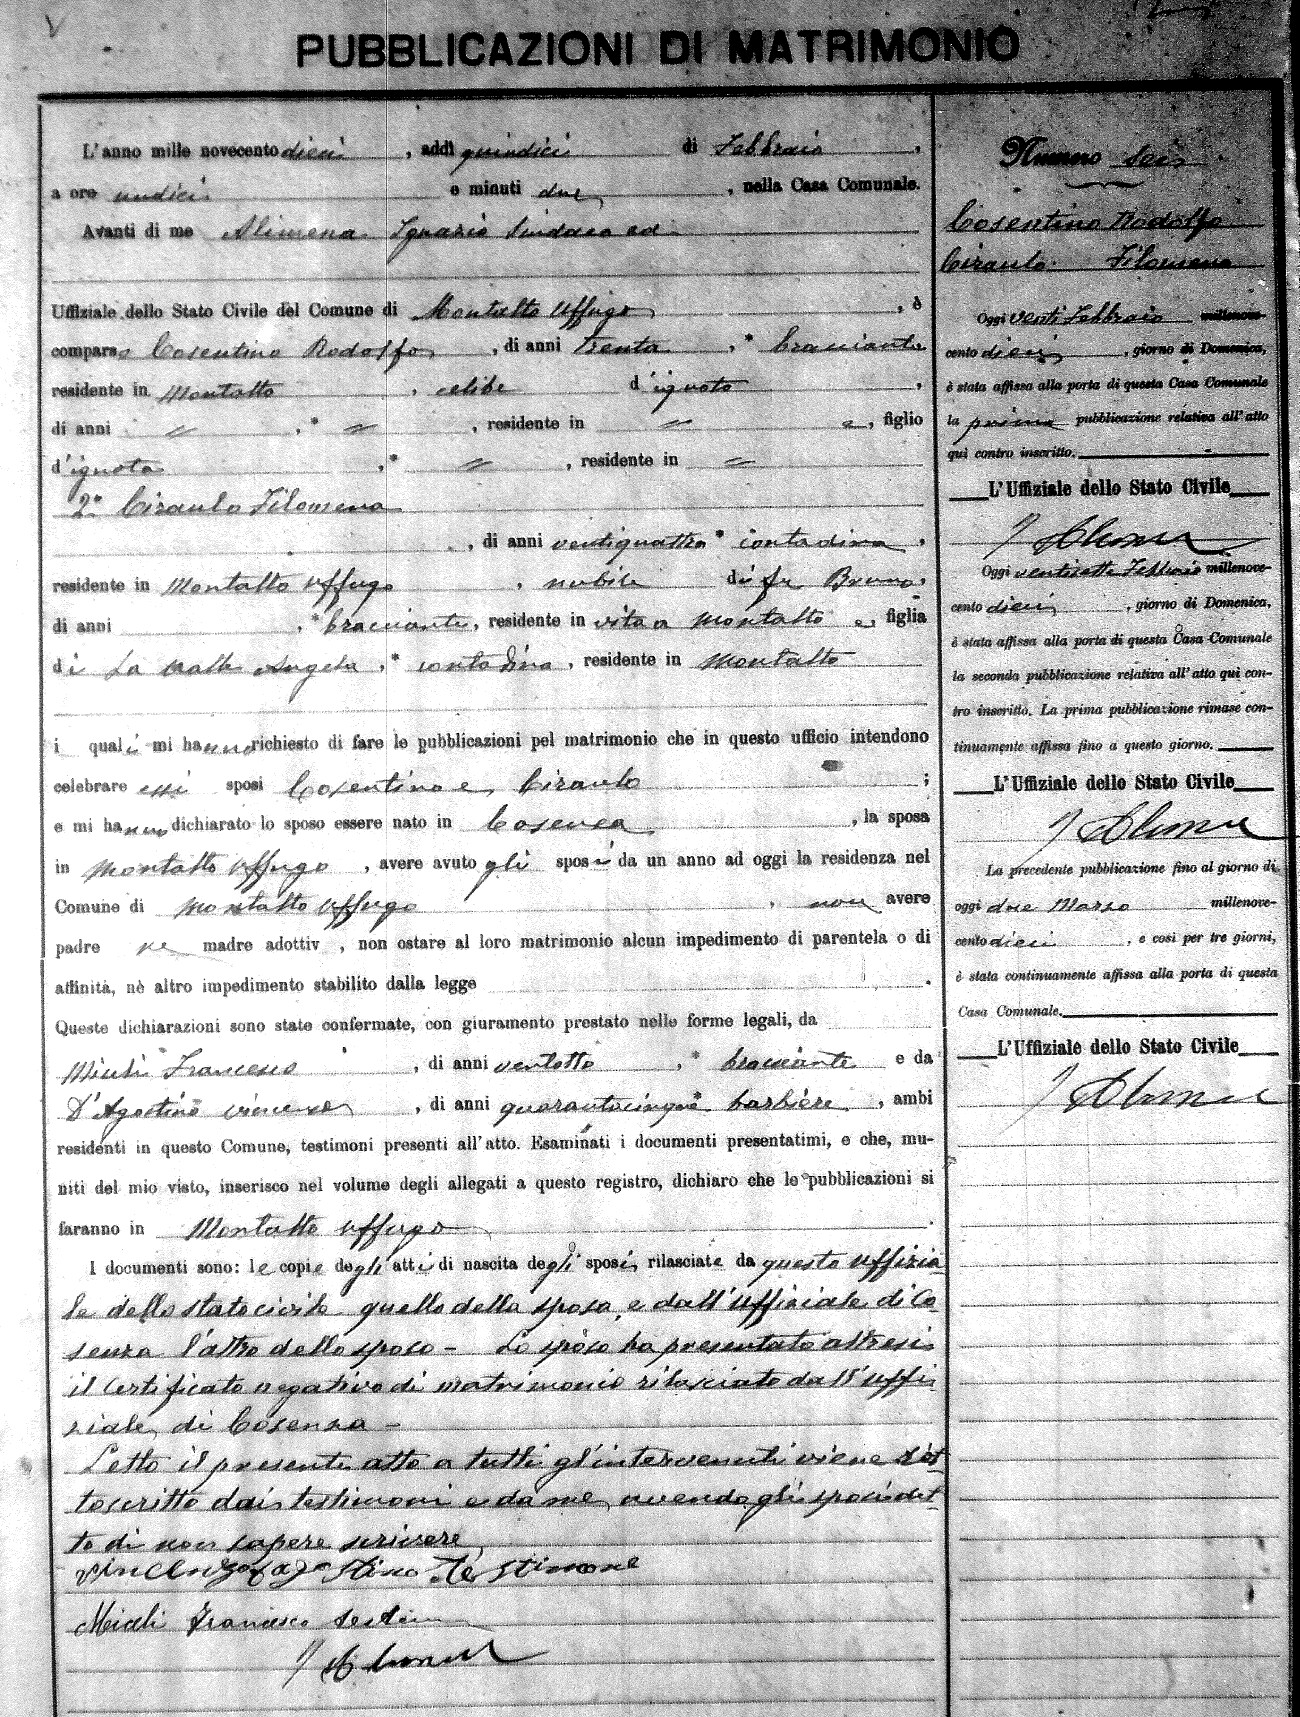 PUBBLICAZIONI DI MATRIMONIO
L'anno mille novecento dieci, addì quindici di Febbraio,
a ore undici e minuti due, nella Casa Comunale.
Avanti di me Alimena Ignazio Sindaco ed
Uffiziale dello Stato Civile del Comune di Montalto Uffugo, è
comparso Cosentino Rodolfo, di anni trenta, * bracciante
residente in Montalto, celibe d'ignoto,
di anni " , * " , residente in " e, figlio
d'ignota , * " , residente in "
2° Ciraulo Filomena
, di anni ventiquattro * contadina,
residente in Montalto Uffugo, nubile di fu Bruno,
di anni , * bracciante, residente in vita a Montalto e, figlia
di La Valle Angela, * contadina, residente in Montalto
i quali mi hanno richiesto di fare le pubblicazioni pel matrimonio che in questo ufficio intendono
celebrare essi sposi Cosentino e Ciraulo ;
e mi hanno dichiarato lo sposo essere nato in Cosenza, la sposa
in Montalto Uffugo, avere avuto gli sposi da un anno ad oggi la residenza nel
Comune di Montalto Uffugo, non avere
padre ne madre adottiv , non ostare al loro matrimonio alcun impedimento di parentela o di
affinità, nè altro impedimento stabilito dalla legge .
Queste dichiarazioni sono state confermate, con giuramento prestato nelle forme legali, da
Miceli Francesco, di anni ventotto, * bracciante e da
D'Agostino Vincenzo, di anni quarantacinque * barbiere, ambi
residenti in questo Comune, testimoni presenti all'atto. Esaminati i documenti presentatimi, e che, mu-
niti del mio visto, inserisco nel volume degli allegati a questo registro, dichiaro che le pubblicazioni si
faranno in Montalto Uffugo .
I documenti sono: le copie degli atti di nascita degli sposi, rilasciate da questo Uffizia
le dello stato civile quello della sposa, e dall'Ufficiale di Co
senza l'altro dello sposo - Lo sposo ha presentato altresi
il certificato negativo di matrimonio rilasciato dall'uffi
ziale di Cosenza -
Letto il presente atto a tutti gl'intervenuti viene sot
toscritto dai testimoni e da me, avendo gli sposi det
to di non sapere scrivere
Vincenzo d'agostino Testimone
Miceli Francesco testim
I Alimena
Numero Sei
Cosentino Rodolfo
Ciraulo Filomena
Oggi venti Febbraio millenove-
cento dieci, giorno di Domenica,
è stata affissa alla porta di questa Casa Comunale
la prima pubblicazione relativa all'atto
qui contro inscritto.
L'Uffiziale dello Stato Civile
I Alimena
Oggi ventisette Febbraio millenove-
cento dieci, giorno di Domenica,
è stata affissa alla porta di questa Casa Comunale
la seconda pubblicazione relativa all'atto qui con-
tro inscritto. La prima pubblicazione rimase con-
tinuamente affissa fino a questo giorno.
L'Uffiziale dello Stato Civile
I Alimena
La precedente pubblicazione fino al giorno di
oggi due Marzo millenove-
cento dieci, e così per tre giorni,
è stata continuamente affissa alla porta di questa
Casa Comunale.
L'Uffiziale dello Stato Civile
I Alimena